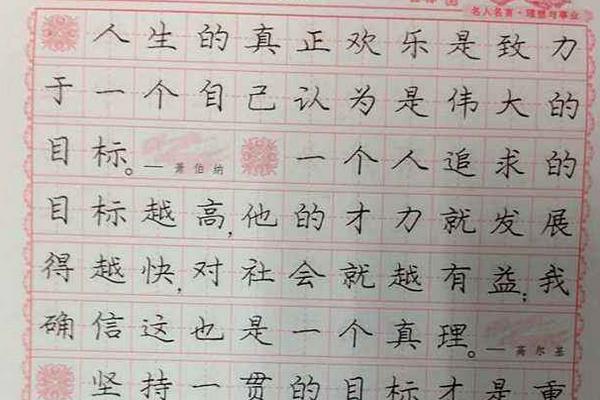 名人名言·理想与事业
人生的真正欢乐是致力
于一个自己认为是伟大的
目标。—萧伯纳 一个人追求的
目标越高,他的才力就发展
得越快,对社会就越有益;我
确信这也是一个真理。—高尔基
坚持一贯的目标才是重